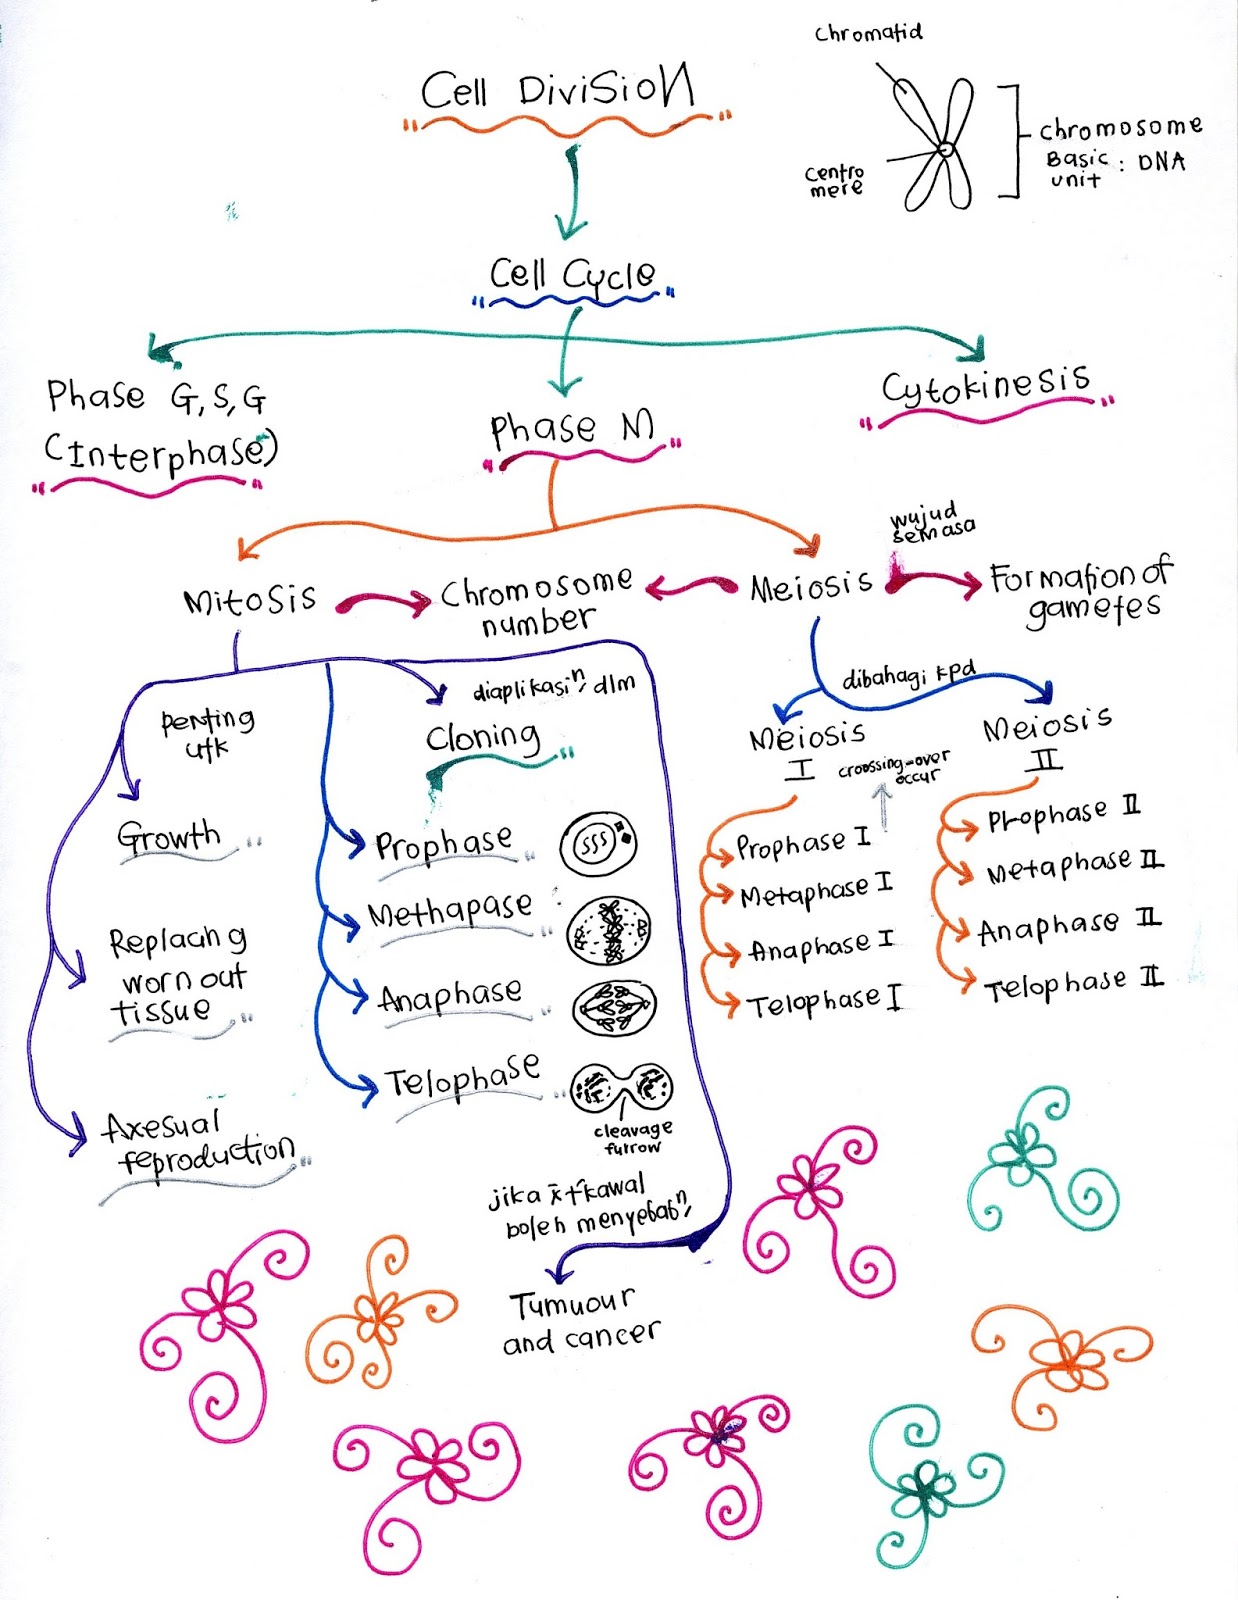 chromatid
Cell Division
chromosome
Basic : DNA
unit
centro
mere
Cell Cycle
Phase G, S, G
(Interphase)
Phase M
Cytokinesis
wujud
semasa
Mitosis
Chromosome
number
Meiosis
Formation of
gametes
penting
utk
diaplikasin, dlm
Cloning
dibahagi kpd
Meiosis
I
croossing-over
occur
Meiosis
II
Growth
Replacing
worn out
tissue
Axesual
reproduction
Prophase
Methapase
Anaphase
Telophase
cleavage
furrow
Prophase I
Metaphase I
Anaphase I
Telophase I
Prophase II
Metaphase II
Anaphase II
Telophase II
jika
boleh menyebabn,
Tumuour
and cancer